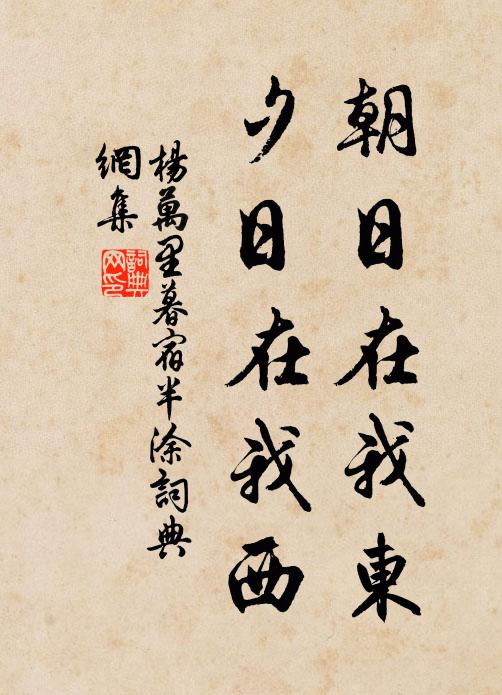 朝日在我東
夕日在我西
楊萬里暮宿半涂詞典
網集
詞典
网印